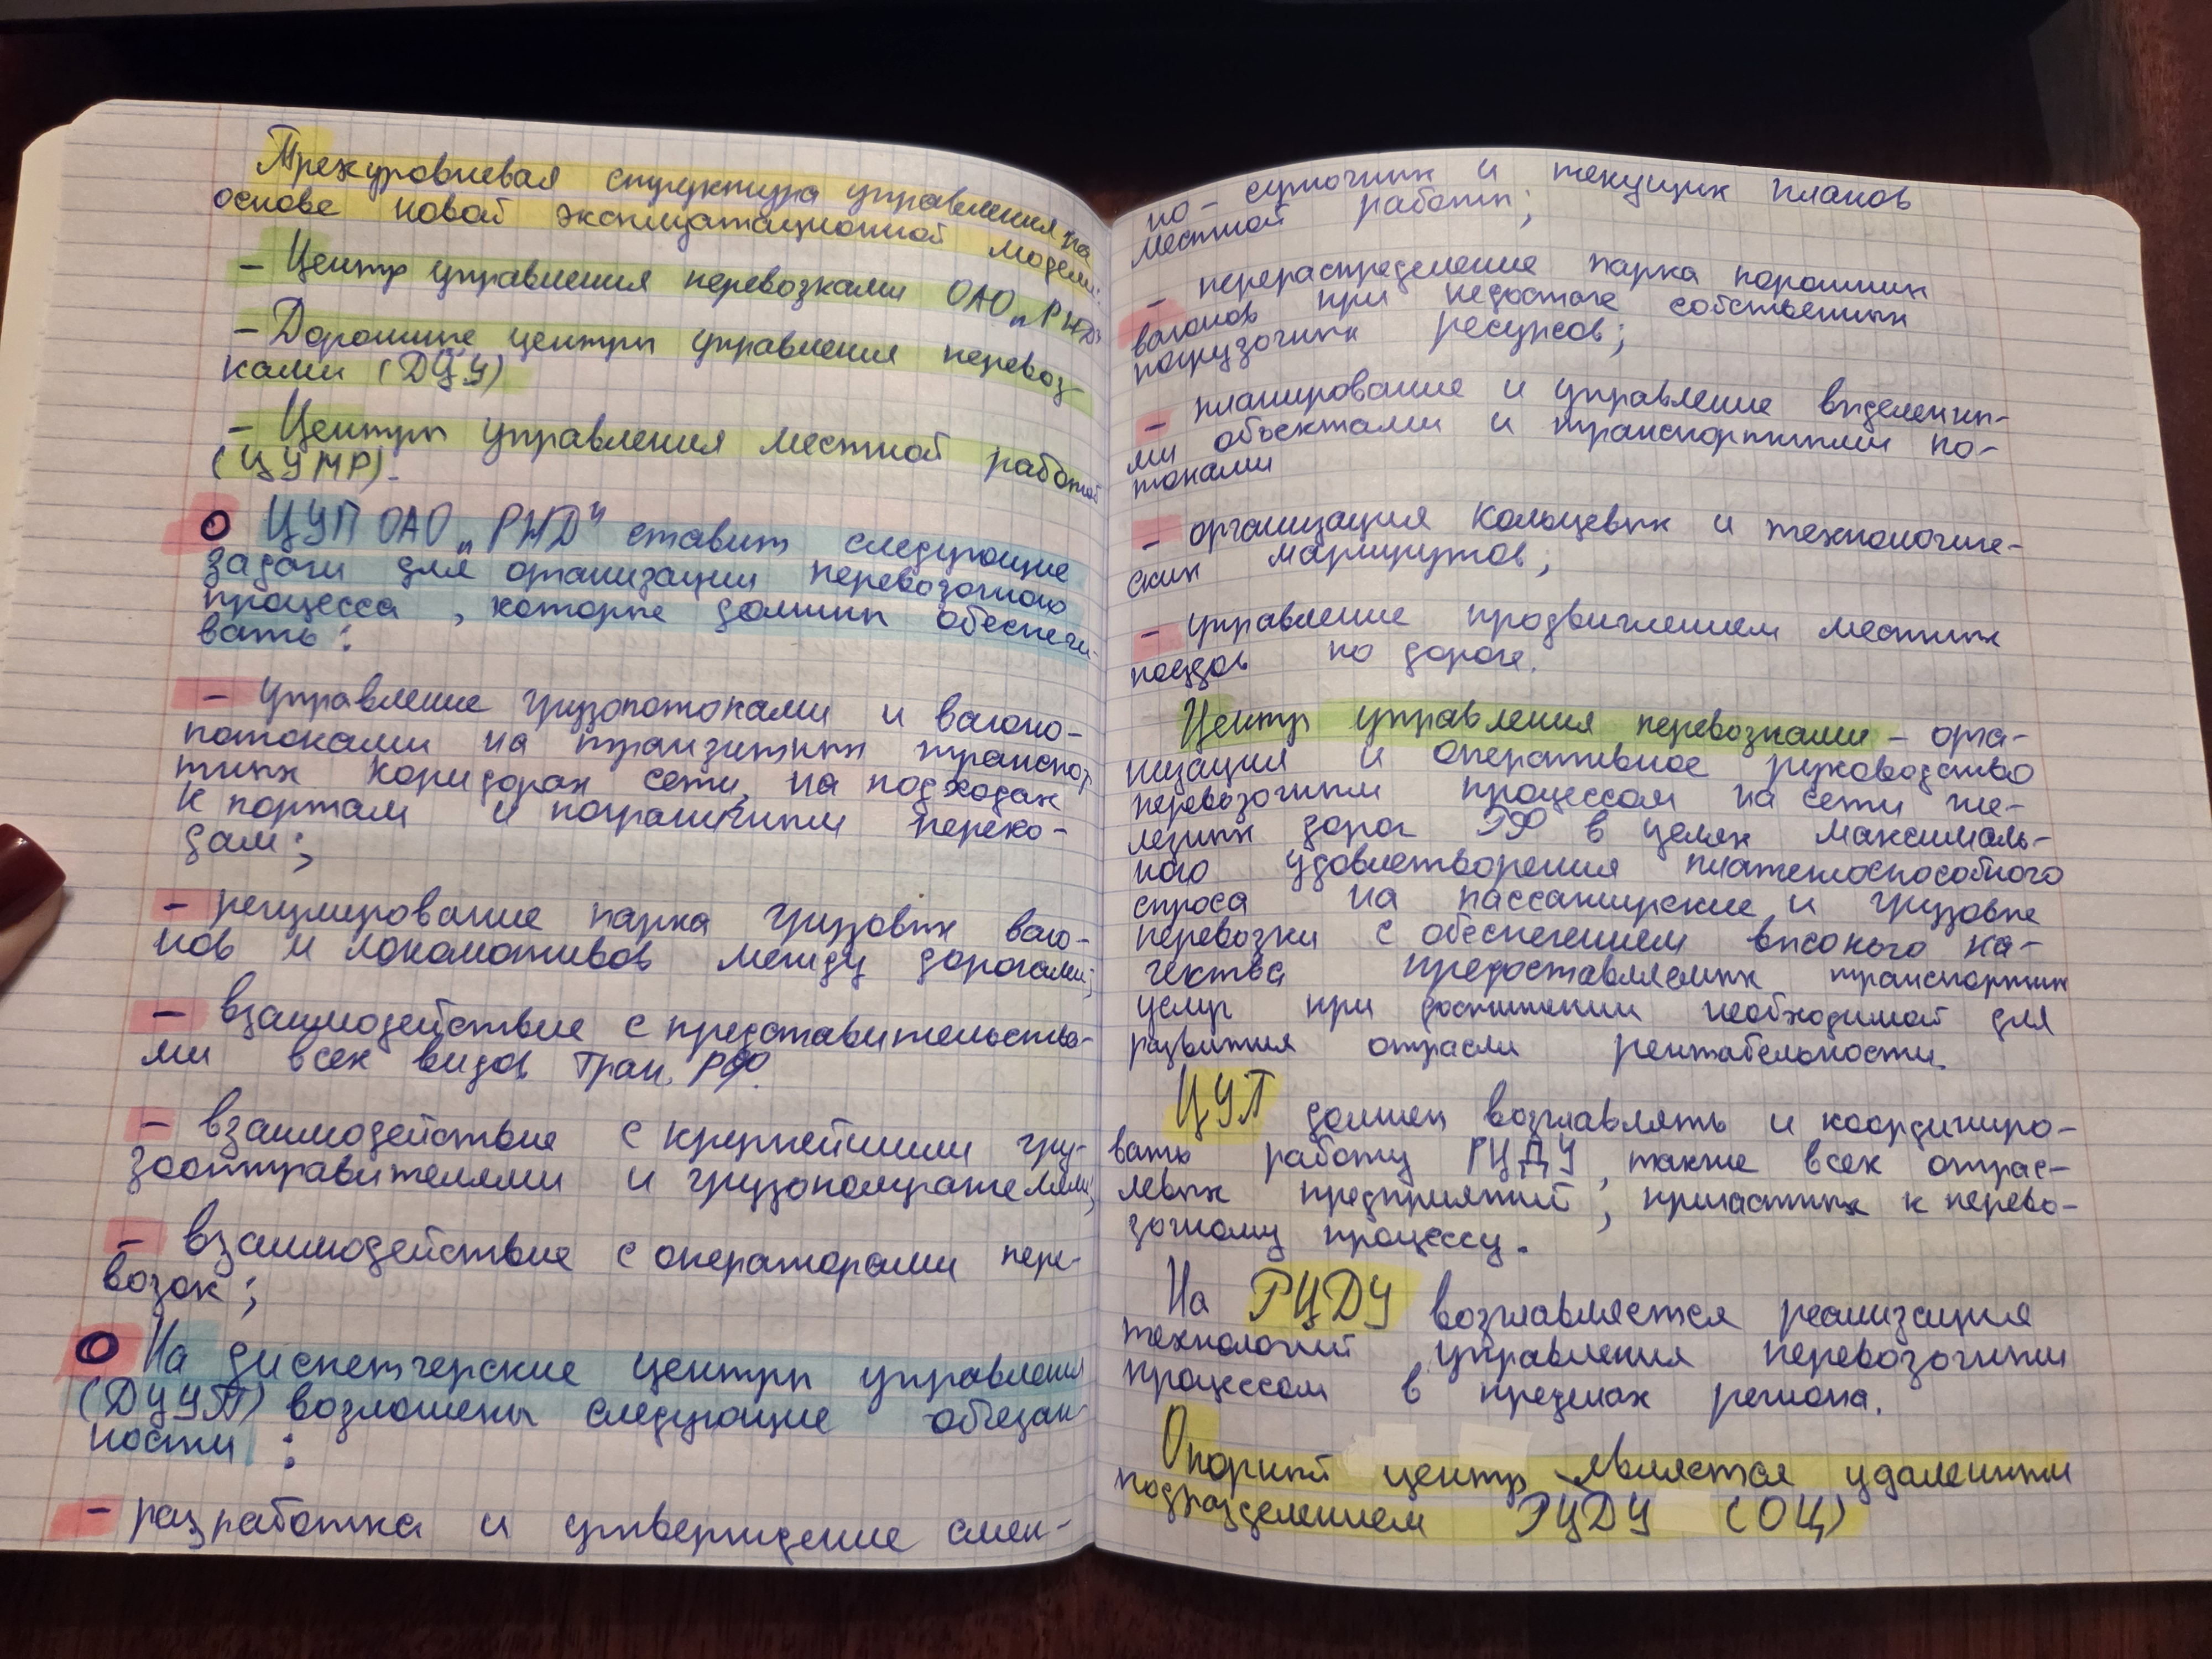 Трехуровневая структура управления на
основе новой эксплуатационной модели:
- Центр управления перевозками ОАО „РЖД"
- Дорожные центры управления перевоз-
ками (ДЦУ)
- Центры управления местной работой
(ЦУМР).
О ЦУП ОАО „РЖД" ставит следующие
задачи для организации перевозочного
процесса, которые должны обеспечи-
вать:
- управление грузопотоками и вагоно-
потоками на транзитных транспор
тных коридорах сети, на подходах
к портам и пограничным перехо-
дам;
- регулирование парка грузовых ваго-
нов и локомотивов между дорогами;
- взаимодействие с представительства-
ми всех видов тран. РФ.
- взаимодействие с крупнейшими гру-
зоотправителями и грузополучателями;
- взаимодействие с операторами пере-
возок;
О На диспетчерские центры управления
(ДЦУП) возложены следующие обязан-
ности :
- разработка и утверждение смен-
но-суточных и текущих планов
местной работы;
- перераспределение парка порожних
вагонов при недостаче собственных
погрузочных ресурсов;
- планирование и управление выделенны-
ми объектами и транспортными по-
токами
- организация кольцевых и технологиче-
ских маршрутов;
- управление продвижением местных
поездов по дороге.
Центр управления перевозками - орга-
низация и оперативное руководство
перевозочным процессом на сети же-
лезных дорог РФ в целях максималь-
ного удовлетворения платежоспособного
спроса на пассажирские и грузовые
перевозки с обеспечением высокого ка-
чества предоставляемых транспортных
услуг при достижении необходимой для
развития отрасли рентабельности.
ЦУП должен возглавлять и координиро-
вать работу РЦДУ, также всех отрас-
левых предприятий, причастных к перево-
зочному процессу.
На РЦДУ возглавляется реализация
технологий управления перевозочным
процессом в пределах региона.
Опорный центр является удаленным
подразделением РЦДУ (ОЦ)